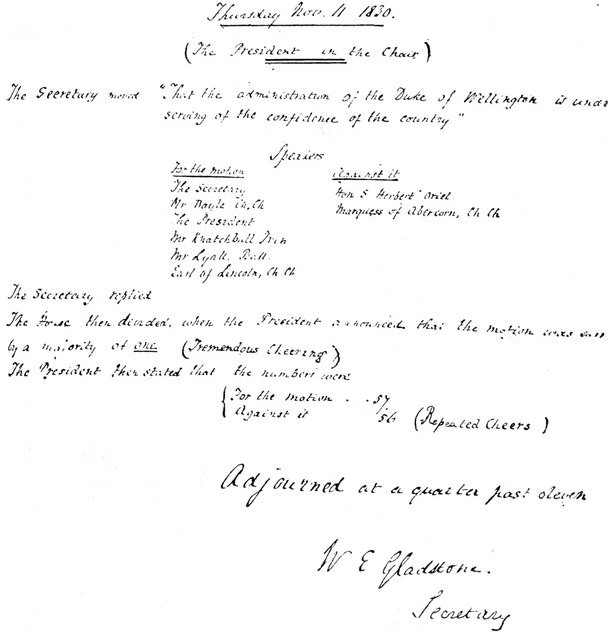 Thursday Nov. 11 1830.
(The President in the Chair)
The Secretary moved "That the administration of the Duke of Wellington is unde
serving of the confidence of the country"
Speakers
For the motion
The Secretary
Mr Doyle Ch. Ch
The President
Mr Knatchbull Trin
Mr Lyall. Ball.
Earl of Lincoln, Ch Ch
Against it
Hon S Herbert Oriel
Marquess of Abercorn, Ch Ch
The Secretary replied
The House then divided, when the President announced that the motion was carr
by a majority of one (Tremendous Cheering)
The President then stated that the numbers were
For the motion . . 57
Against it 56 (Repeated Cheers)
Adjourned at a quarter past eleven
W E Gladstone.
Secretary